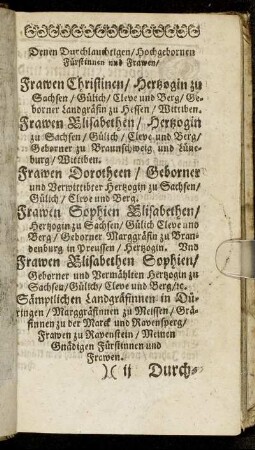 Denen Durchlauchtigen/ Hochgebornen
Fürstinnen und Frawen/
Frawen Christinen/ Hertzogin zu
Sachsen/ Gülich/ Cleve und Berg/ Ge-
borner Landgräfin zu Hessen/ Wittiben.
Frawen Elisabethen/ Hertzogin
zu Sachsen/ Gülich/ Cleve und Berg/
Geborner zu Braunschweig und Lüne-
burg/ Wittiben.
Frawen Dorotheen/ Geborner
und Verwittibter Hertzogin zu Sachsen/
Gülich/ Cleve und Berg.
Frawen Sophien Elisabethen/
Hertzogin zu Sachsen/ Gülich Cleve und
Berg/ Geborner Marggräfin zu Bran-
denburg in Preussen/ Hertzogin. Und
Frawen Elisabethen Sophien/
Geborner und Vermählten Hertzogin zu
Sachsen/ Gülich/ Cleve und Berg/ ꝛc.
Sämptlichen Landgräfinnen in Dü-
ringen/ Marggräfinnen zu Meissen/ Grä-
finnen zu der Marck und Ravensperg/
Frawen zu Ravenstein/ Meinen
Gnädigen Fürstinnen und
Frawen.
)( ij Durch-